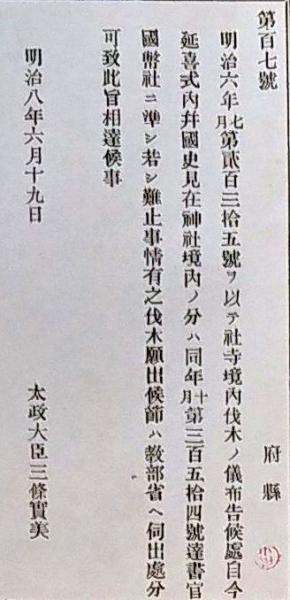 第百七號
府縣
明治六年七月第貳百三拾五號ヲ以テ社寺境內伐木ノ儀布告候處自今
延喜式內幷國史見在神社境內ノ分ハ同年十月第三百五拾四號達書官
國幣社ニ準シ若シ難止事情有之伐木願出候節ハ敎部省ヘ伺出處分
可致此旨相達候事
明治八年六月十九日
太政大臣三條實美